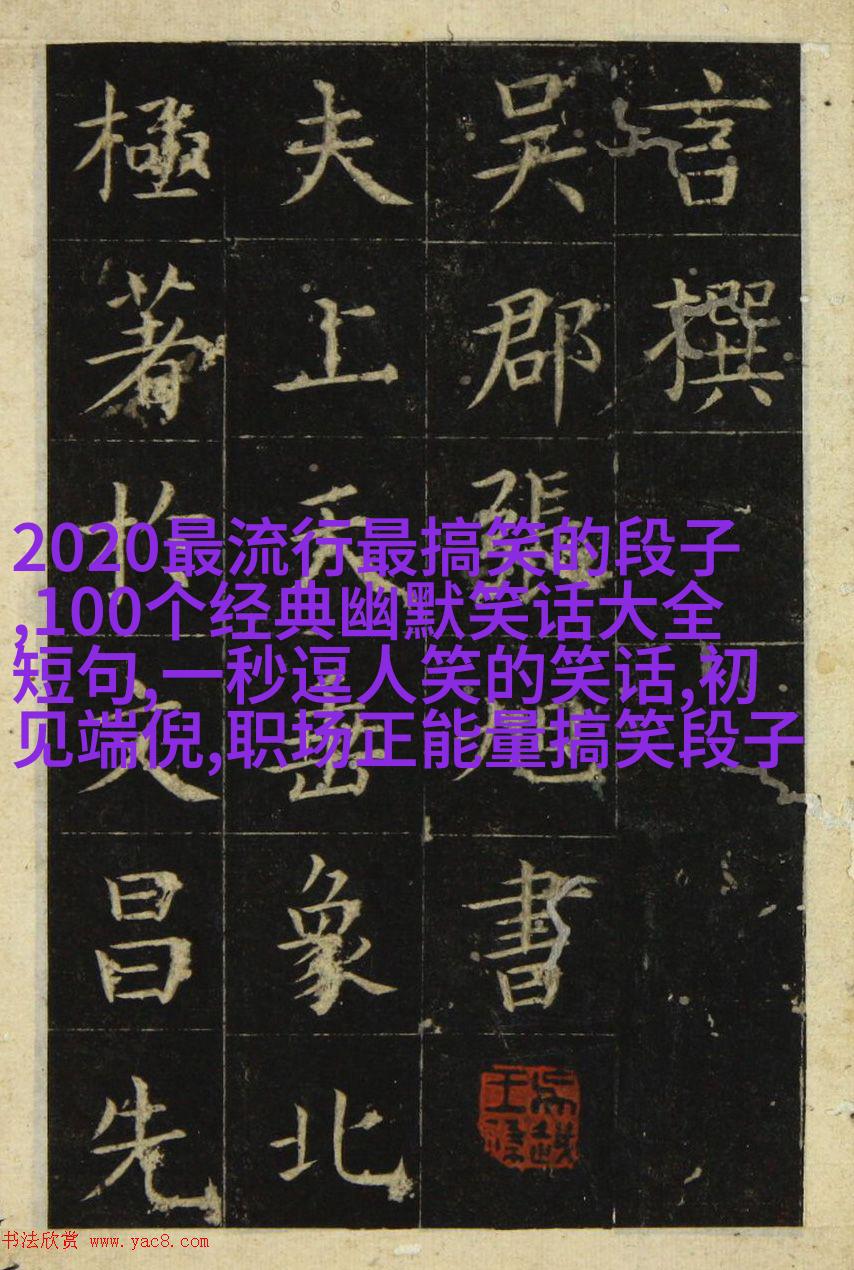 言撰
吴郡張旭書
夫上天垂象北
極著於文昌先
2020最流行最搞笑的段子
,100个经典幽默笑话大全
短句,一秒逗人笑的笑话,初
见端倪,职场正能量搞笑段子
书法欣赏 www.yac8.com